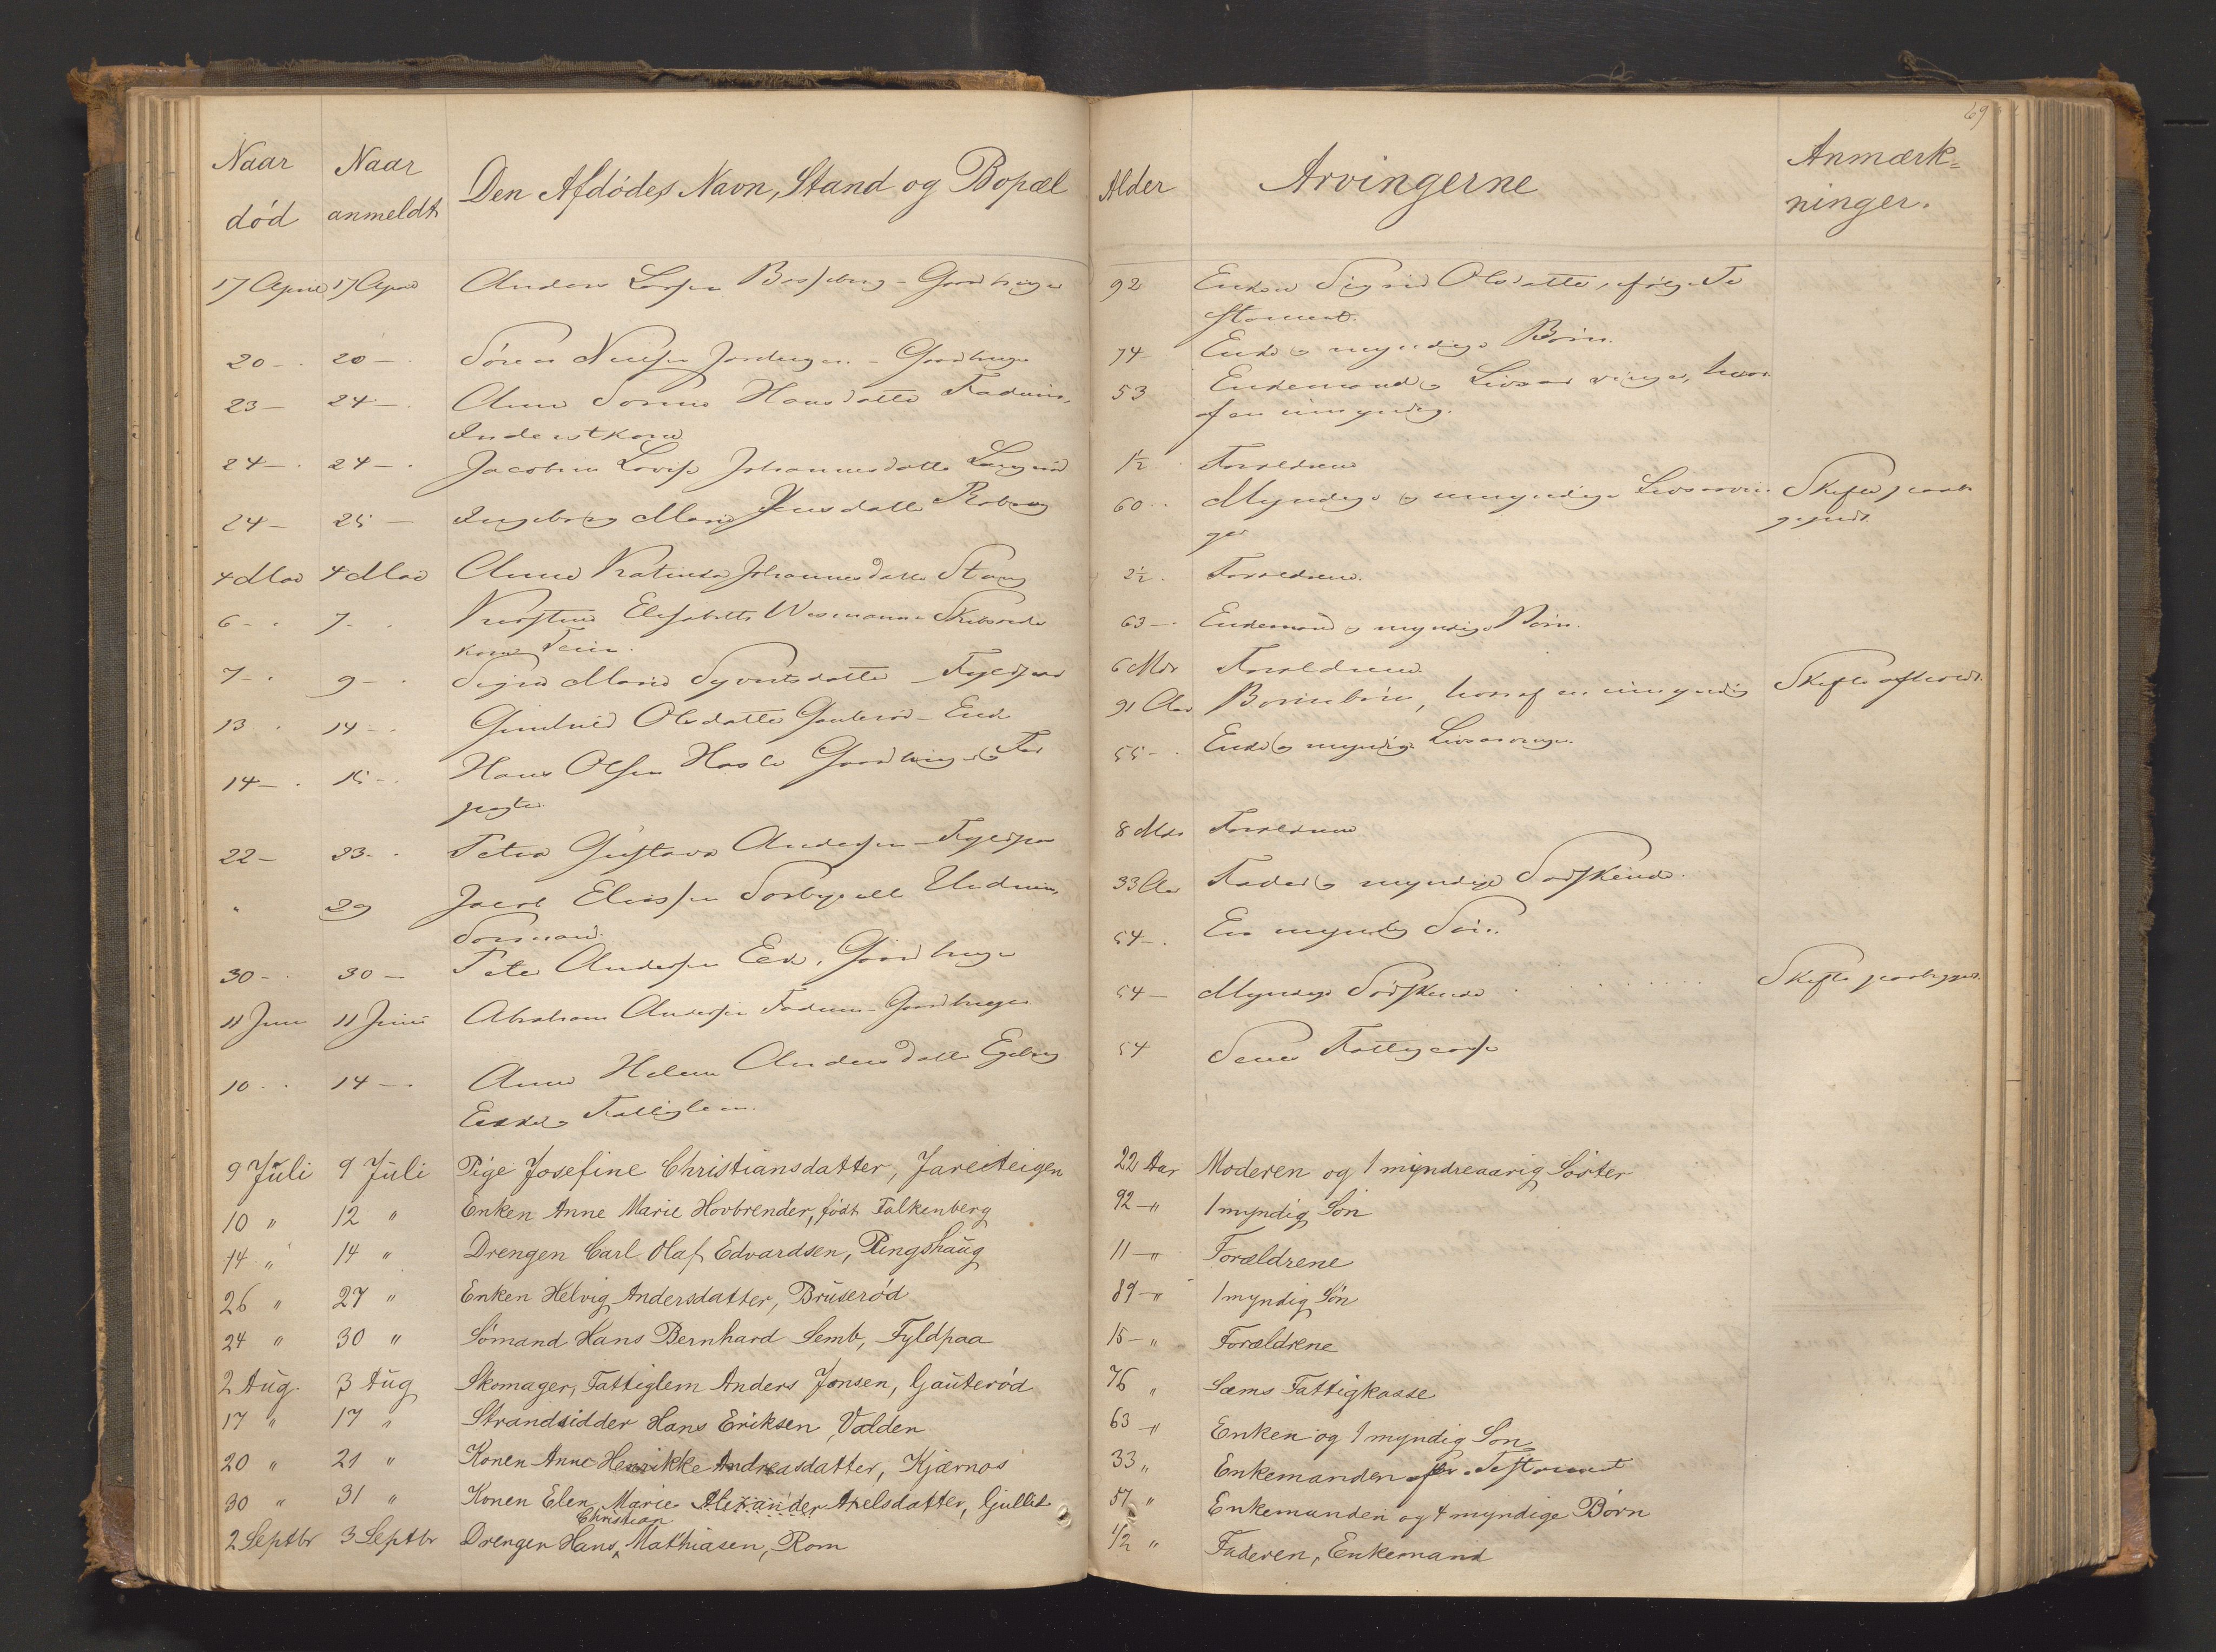 69
Naar død | Naar anmeldt | Den Afdødes Navn, Stand og Bopæl | Alder | Arvingerne | Anmærkninger.
17 April | 17 April | Anders Larsen - Gaardbruger | 92 | Enken Sigrid Olsdatter, ifølge Te
stament.
20 - | 20 - | Søren Nielsen - Gaardbruger | 74 | Enke og myndige Børn.
23 - | 24 - | Anne Hansdatter Fadum, | 53 | Enkemand og Livsarvinger, hvor
Inderstkone | af en umyndig.
24 - | 24 - | Jacobine Lovise Johannesdatter | 1½ | Forældrene
24 - | 25 - | Ingeborg Marie Jensdatter | 60 | Myndige og umyndige Livsarvin | Skifte paabe
ger | gjendt.
4 Mai | 4 Mai | Anne Johannesdatter Stang | 2½ | Forældrene.
6 - | 7 - | Elisabeth | 63 - | Enkemand og myndige Børn.
kone
7 - | 9 - | Marie Syvertsdatter - Fyldpaa | 6 Mdr | Forældrene
13 | 14 - | Gunhild Olsdatter Gauterød - Enke | 91 Aar | Børnebørn, hvoraf en umyndig | Skifte afholdt.
14 - | 15 - | Hans Olsen Hasle Gaardbruger | 55 - | Enke og myndige Livsarvinger.
22 - | 23 - | Petra Gustava Andersen - Fyldpaa | 8 Mdr | Forældrene
" | 29 | Jacob Eliassen | 33 Aar | Fader og myndige Sødskende.
Sømand.
30 - | 30 - | Peter Andersen Eek, Gaardbruger | 54 - | En myndig Søn.
11 Juni | 11 Juni | Abraham Andersen Fadum - Gaardbruger | 54 - | Myndige Sødskende | Skifte paabegyndt.
10 | 14 - | Anne Helene Andersdatter | 54 | Sems Fattigcasse
Enke, Fattiglem.
9 Juli | 9 Juli | Pige Josefine Christiansdatter, Jareteigen | 22 Aar | Moderen og 1 myndreaarig Søster
10 " | 12 " | Enken Anne Marie Hovbrender, født Falkenberg | 92 - " | 1 myndig Søn
14 " | 14 " | Drengen Carl Olaf Edvardsen, Ringshaug | 11 - " | Forældrene
26 " | 27 " | Enken Helvig Andersdatter, Bruserød | 89 - " | 1 myndig Søn
24 " | 30 " | Sømand Hans Bernhard Semb, Fyldpaa | 15 - " | Forældrene
2 Aug. | 3 Aug | Skomager, Fattiglem Anders Jonsen, Gauterød | 76 " | Sæms Fattigkasse
17 " | 17 " | Strandsidder Hans Eriksen, Valden | 63 - " | Enken og 1 myndig Søn
20 " | 21 " | Konen Anne Henrikke Andreasdatter, Kjærnøs | 33 " | Enkemanden eftr. Testament
30 " | 31 " | Konen Elen Marie Alexander Axelsdatter, Gullik | 57 " | Enkemanden og 4 myndige Børn
2 Septbr | 3 Septbr | Drengen Hans Christian Mathiasen, Rom | 1/2 " | Faderen, Enkemand